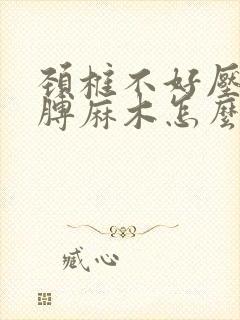 颈椎不好壓
脾麻木怎麼
臧心